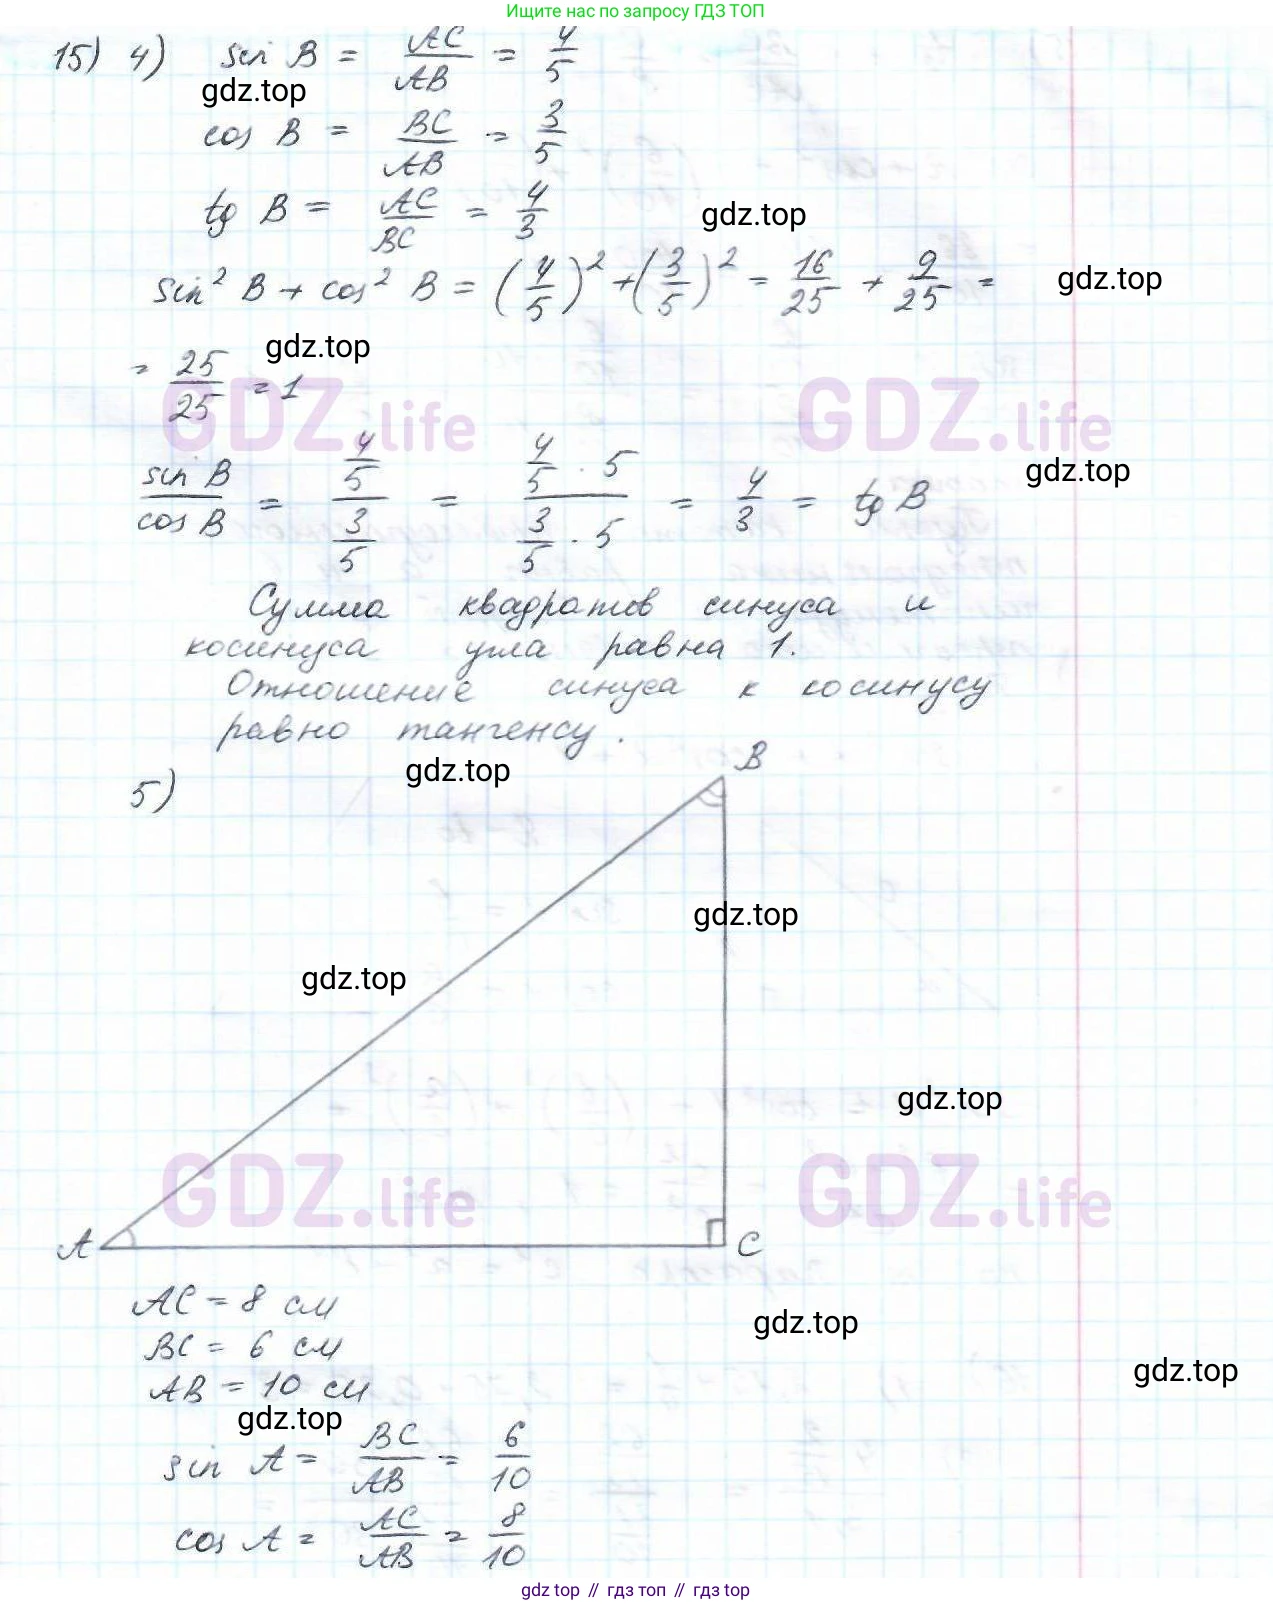 Ищите нас по запросу ГДЗ ТОП
15) 4) sin B = AC/AB = 4/5
gdz.top
cos B = BC/AB = 3/5
tg B = AC/BC = 4/3
gdz.top
sin² B + cos² B = (4/5)² + (3/5)² = 16/25 + 9/25 =
gdz.top
gdz.top
= 25/25 = 1
GDZ.life GDZ.life
gdz.top
sin B/cos B = 4/5 / 3/5 = 4/5 · 5 / 3/5 · 5 = 4/3 = tg B
Сумма квадратов синуса и
косинуса угла равна 1.
Отношение синуса к косинусу
равно тангенсу.
gdz.top
5)
B
gdz.top
gdz.top
gdz.top
GDZ.life GDZ.life
A C
AC = 8 см
gdz.top
BC = 6 см
gdz.top
AB = 10 см
gdz.top
sin A = BC/AB = 6/10
cos A = AC/AB = 8/10
gdz top // гдз топ // гдз top